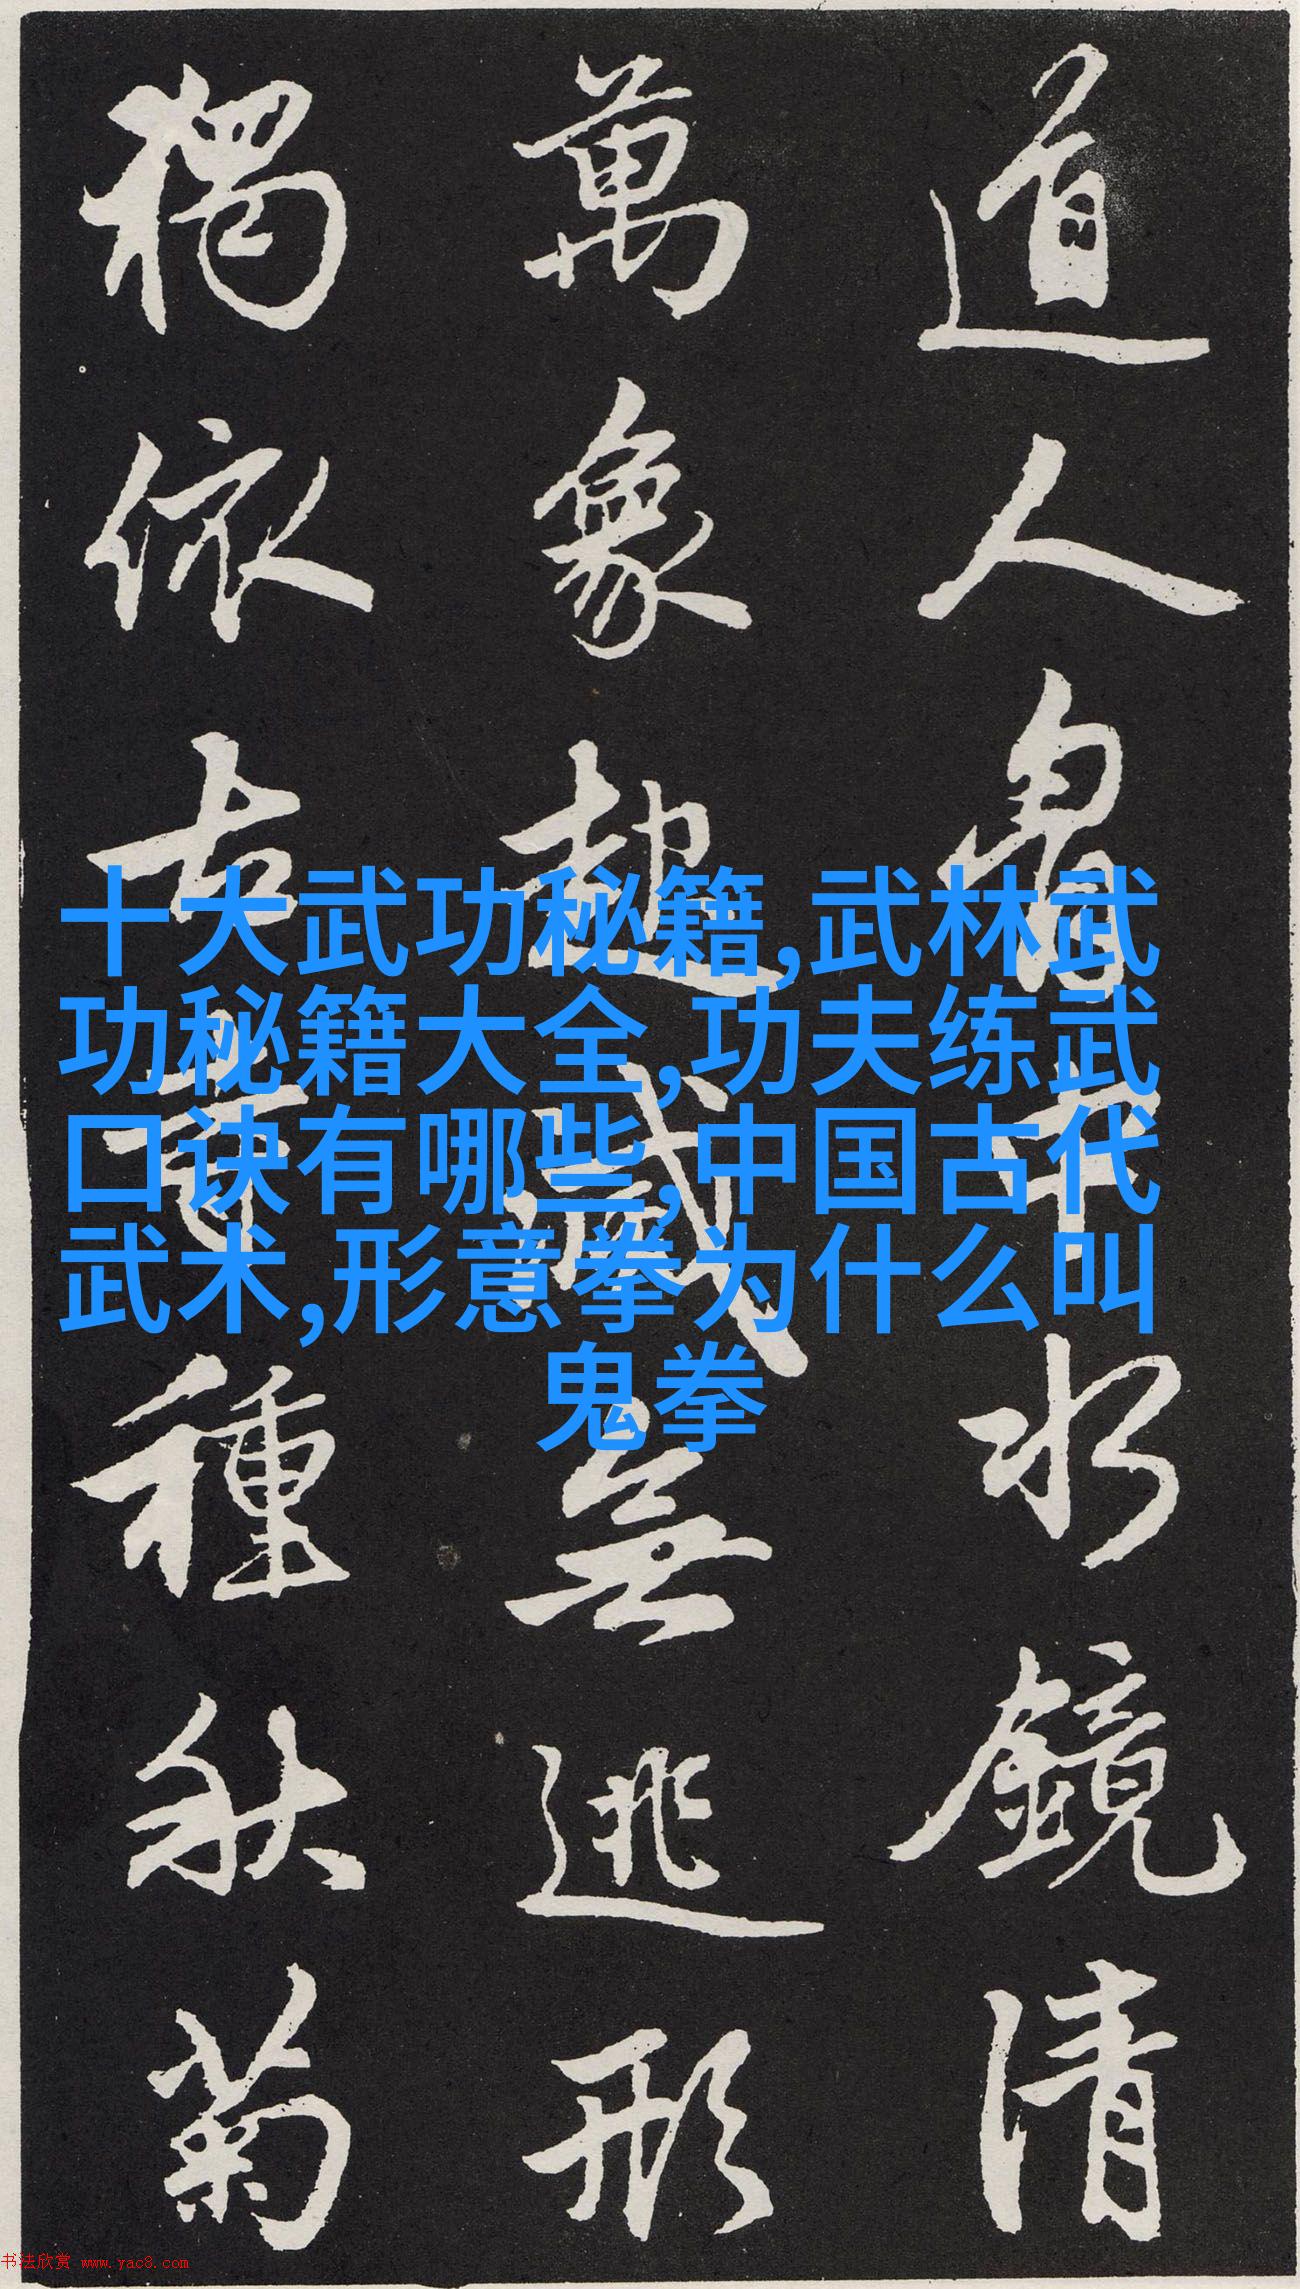 道人胷中水鏡清
萬象起滅無逃形
獨依古寺種秋菊
十大武功秘籍,武林武
功秘籍大全,功夫练武
口诀有哪些,中国古代
武术,形意拳为什么叫
鬼拳
书法欣赏 www.yac8.com